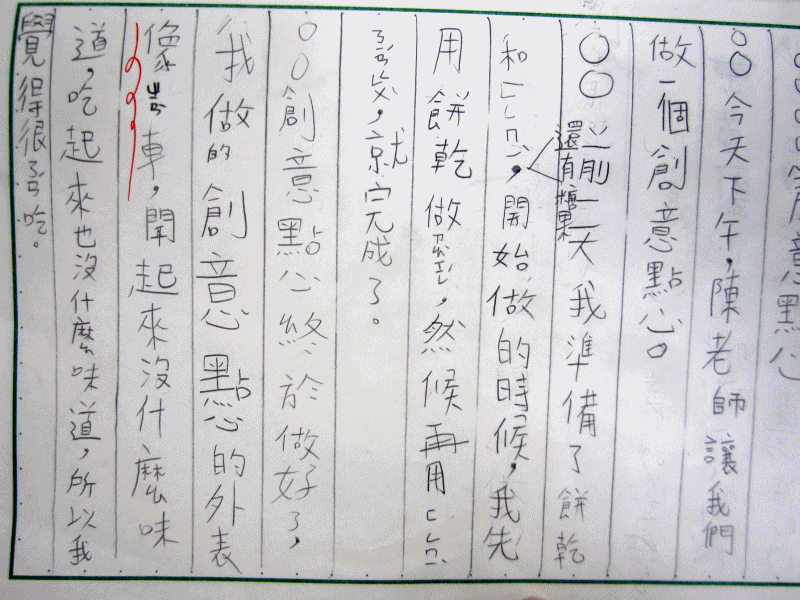 意點心
○○今天下午,陳老師讓我們
做一個創意點心。
○○前一天我準備了餅乾
還有糖果
和,開始做的時候,我先
用餅乾做,然候再用
,就完成了。
○○創意點心終於做好了,
我做的創意點心的外表
像車,聞起來沒什麼味
道,吃起來也沒什麼味道,所以我
覺得很吃。